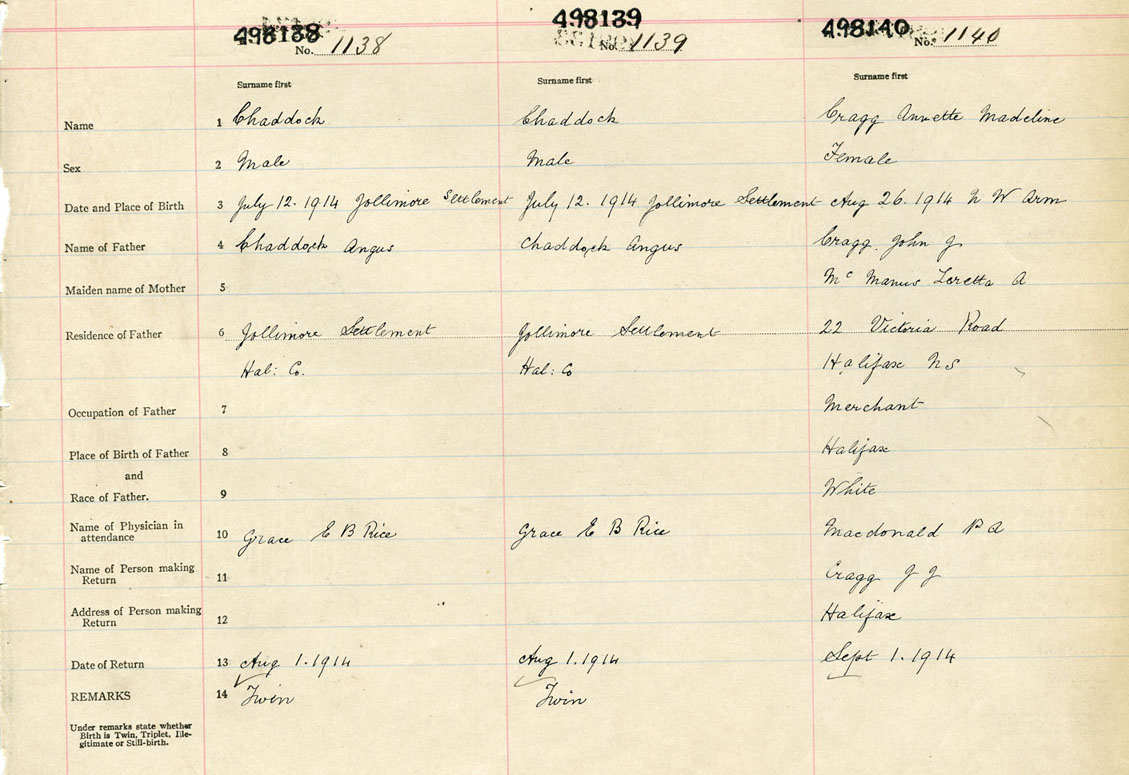 498138 498139 498140
No. 1138 No. 1139 No. 1140
Surname first Surname first Surname first
Name 1 Chaddock Chaddock Cragg Annette Madeline
Sex 2 Male Male Female
Date and Place of Birth 3 July 12. 1914 Jollimore Settlement July 12. 1914 Jollimore Settlement Aug 26. 1914 N W Arm
Name of Father 4 Chaddock Angus Chaddock Angus Cragg. John J
Maiden name of Mother 5 Mc Manus Loretta A
Residence of Father 6 Jollimore Settlement Jollimore Settlement 22 Victoria Road
Hal: Co. Hal: Co Halifax N S
Occupation of Father 7 Merchant
Place of Birth of Father 8 Halifax
and
Race of Father. 9 White
Name of Physician in attendance 10 Grace E B Rice Grace E B Rice Macdonald P A
Name of Person making Return 11 Cragg J J
Address of Person making Return 12 Halifax
Date of Return 13 Aug 1. 1914 Aug 1. 1914 Sept 1. 1914
REMARKS 14 Twin Twin
Under remarks state whether
Birth is Twin, Triplet, Ille-
gitimate or Still-birth.